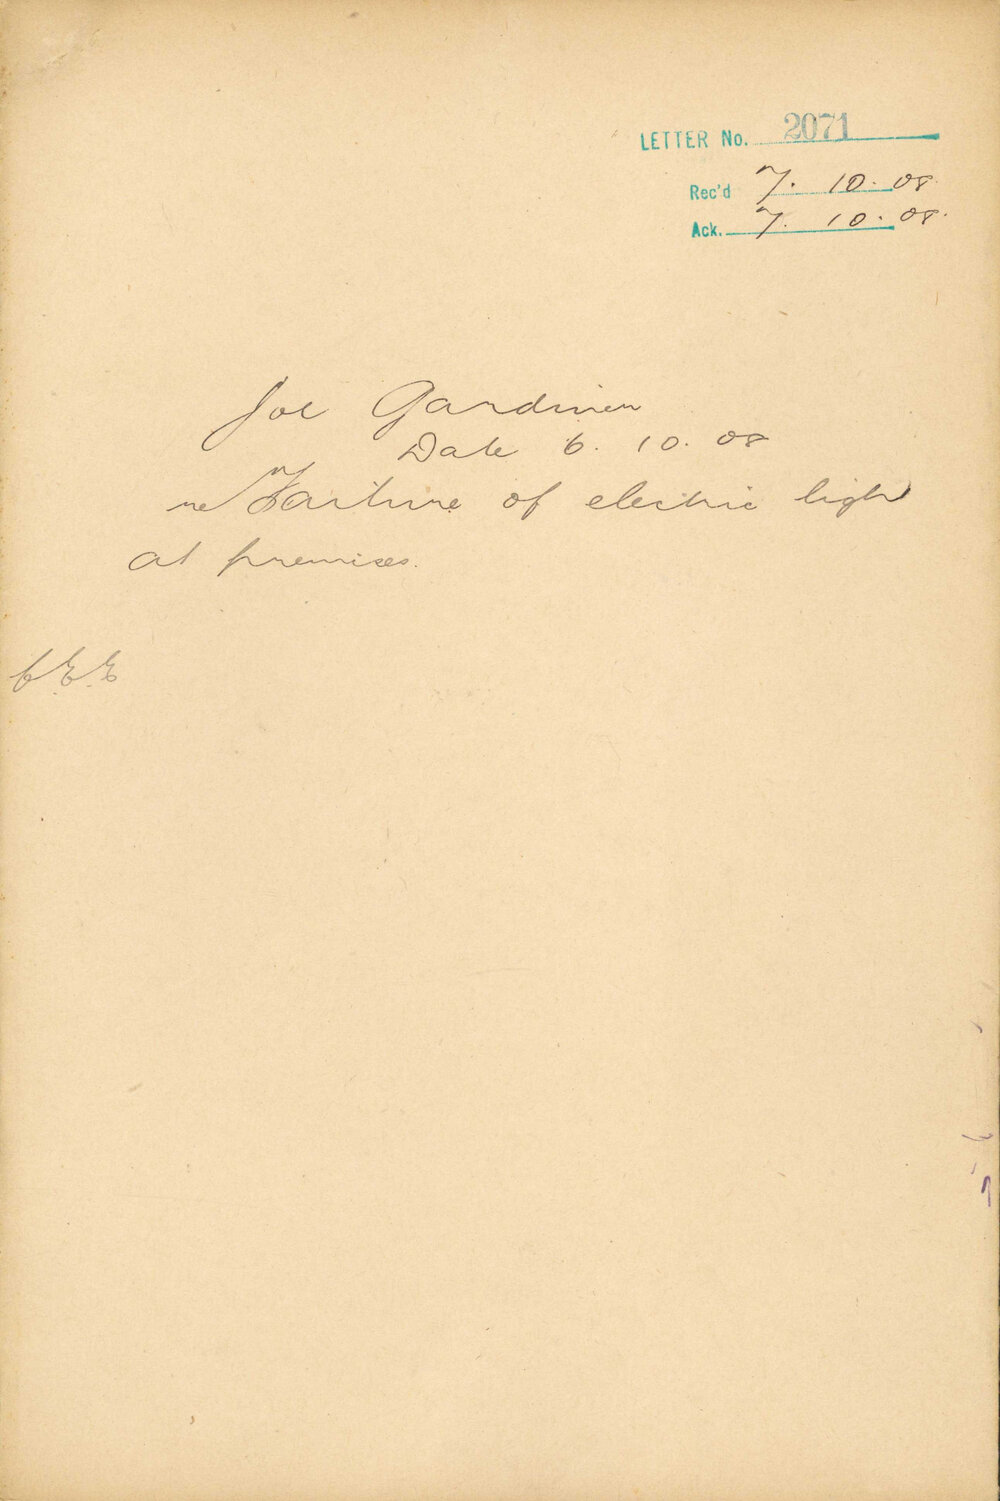 LETTER No. 2071
Rec'd 7. 10. 08
Ack. 7. 10. 08.
Joe Gardiner
Date 6. 10. 08
re Failure of electric light
at premises.
C.E.E